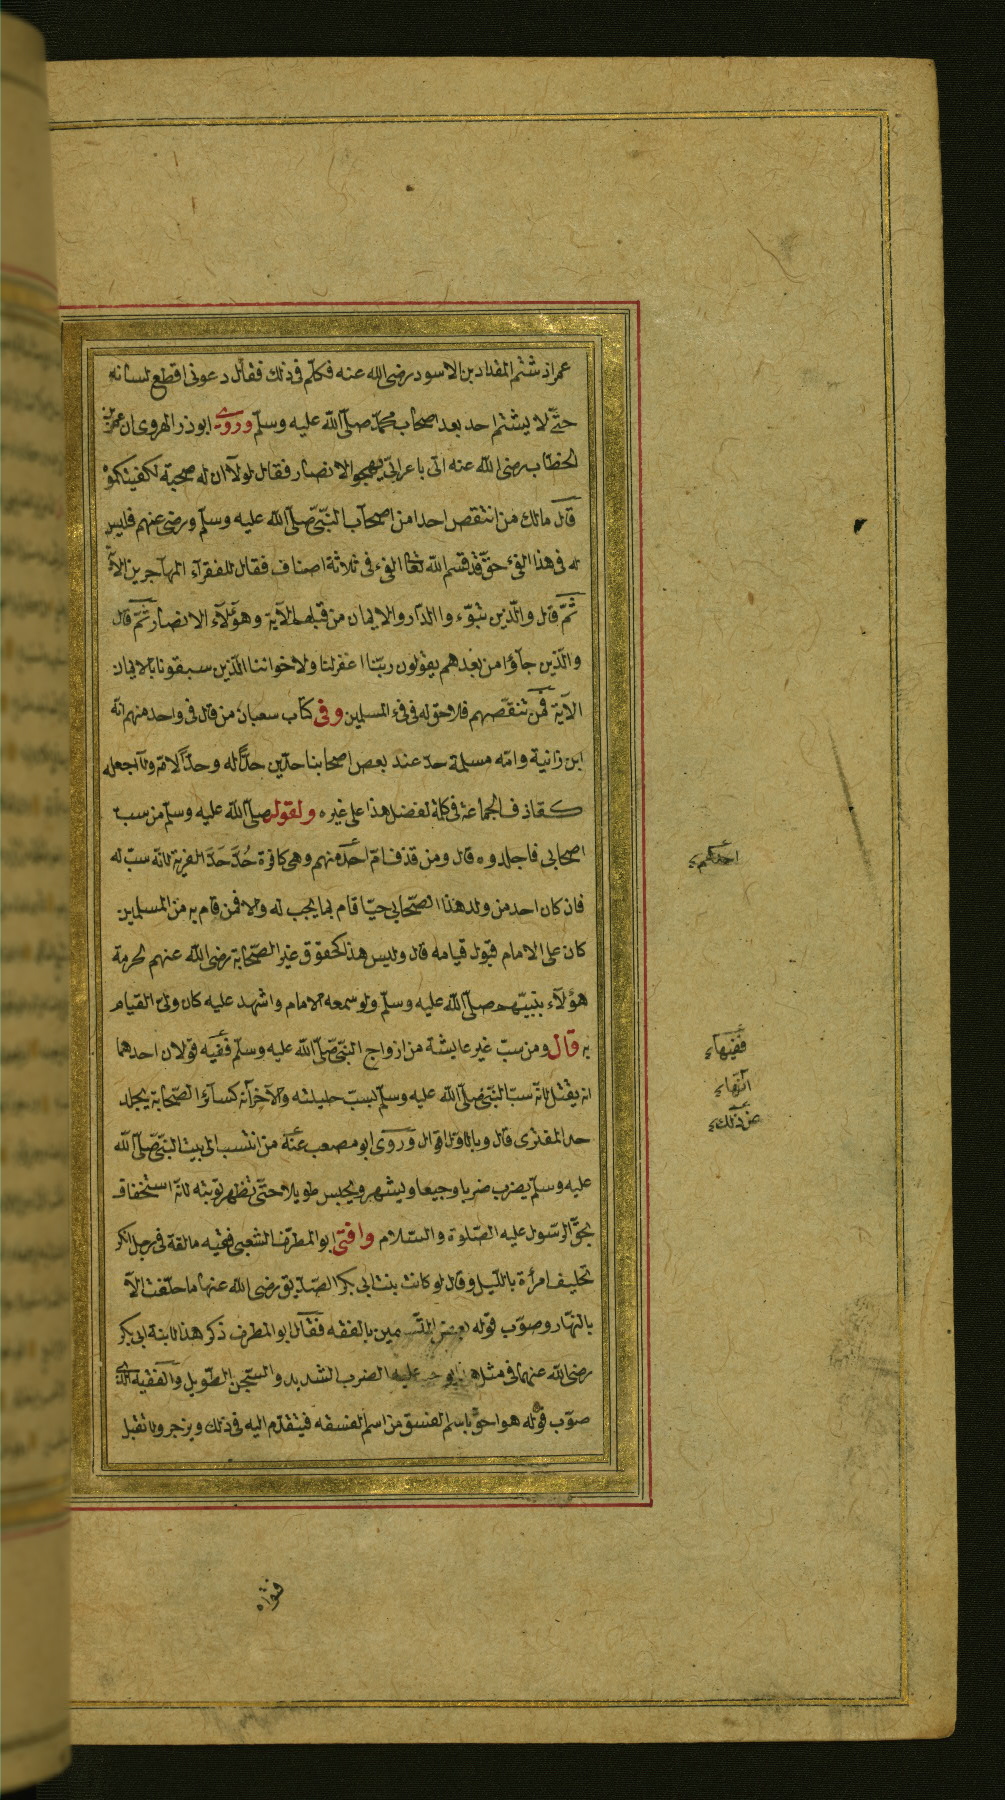 عمر اذ شتم المقداد بن الاسود رضى الله عنه فكلم فى ذلك فقال دعونى اقطع لسانه
حتى لا يشتم احد بعد اصحاب محمد صلى الله عليه وسلم وروى ابوذر الهروى ان عمر بن
الخطاب رضى الله عنه اتى باعرابى يهجو الانصار فقال لولا ان له صحبة لكفيتكموه
قال مالك من انتقص احدا من اصحاب النبى صلى الله عليه وسلم ورضى عنهم فليس
له فى هذا الفىء حق قد قسم الله تعالى الفىء فى ثلاثة اصناف فقال للفقرآء المهاجرين الآية
ثم قال والذين تبوّءوا الدار والايمان من قبلهم الآية وهؤلآء الانصار ثم قال
والذين جآؤا من بعدهم يقولون ربنا اغفر لنا ولاخواننا الذين سبقونا بالايمان
الآية فمن تنقصهم فلا حق له فى فىء المسلمين وفى كتاب شعبان من قال فى واحد منهم انه
ابن زانية وامه مسلمة حد عند بعض اصحابنا حدين حدّا له وحدّا لامه ولا اجعله
كقاذف الجماعة فى كلمة لفضل هذا على غيره ولقوله صلى الله عليه وسلم من سب
اصحابى فاجلدوه قال ومن قذف امّ احدهم منهم وهى كافرة حُدَّ حَدَّ الفرية لانه سبّ له
فان كان احد من ولد هذا الصحابى حيّا قام بما يجب له والا فمن قام به من المسلمين
كان على الامام قبول قيامه قال وليس هذا كحقوق غير الصحابة رضى الله عنهم لحرمة
هؤلآء بنبيهم صلى الله عليه وسلم ولو سمعه الامام واشهد عليه كان ولىّ القيام
به قال ومن سبّ غير عايشة من ازواج النبى صلى الله عليه وسلم ففيه قولان احدهما
انه يقتل لانه سبّ النبى صلى الله عليه وسلم بسبّ حليلته والآخر انه كسآئر الصحابة يجلد
حد المفترى قال وبالاول اقول وروى ابو مصعب عنه من انتسب الى بيت النبى صلى الله
عليه وسلم يضرب ضربا وجيعا ويشهر ويحبس طويلا حتى تظهر توبته لانه استخفاف
بحق الرسول عليه الصلوة والسلام وافتى ابو المطرف الشعبى فقيه مالقة فى رجل انكر
تحليف امرأة بالليل وقال لو كانت بنت ابى بكر الصديق رضى الله عنهما ما حلفت الا
بالنهار وصوب قوله بعض المتسمين بالفقه فقال ابو المطرف ذكر هذا لابنة ابى بكر
رضى الله عنهما فى مثل هذا يوجب عليه الضرب الشديد والسجن الطويل والفقيه الذى
صوب قوله هو احق باسم الفسق من اسم الفقه فيتقدم اليه فى ذلك ويزجر ولا تقبل
ففيها
انها
عن ذلك
فتواه